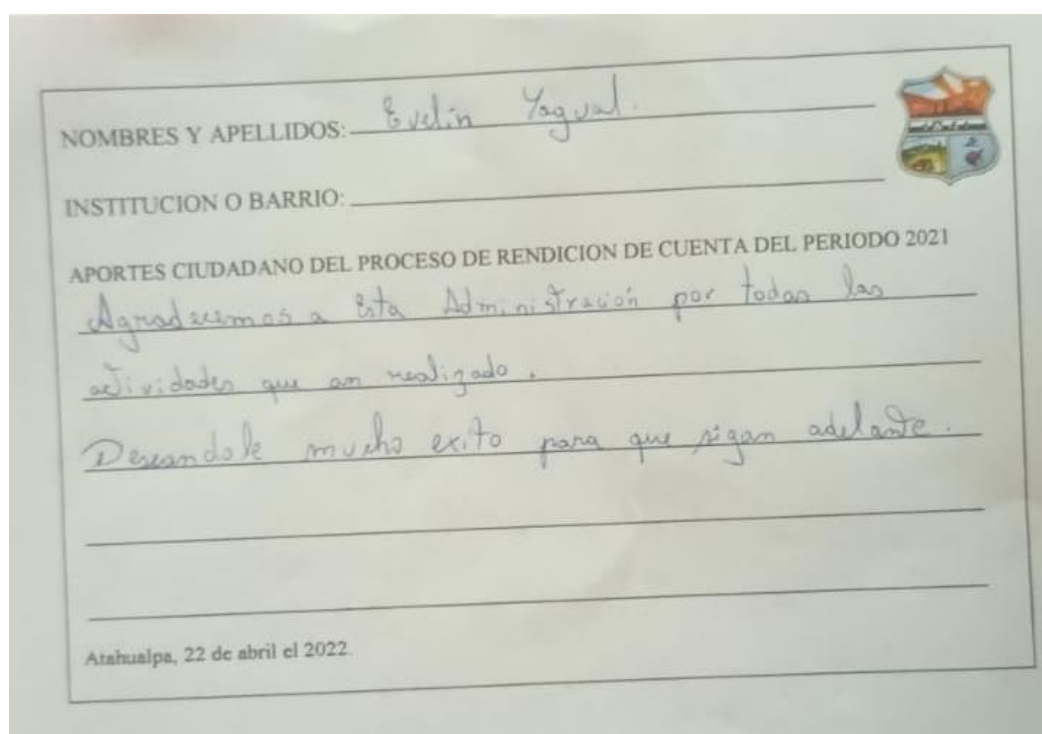 NOMBRES Y APELLIDOS: Evelin Yagual.
INSTITUCION O BARRIO:
APORTES CIUDADANO DEL PROCESO DE RENDICION DE CUENTA DEL PERIODO 2021
Agradecemos a Esta Administración por todas las
actividades que an realizado.
Deseandole mucho exito para que sigan adelante.
Atahualpa, 22 de abril el 2022.